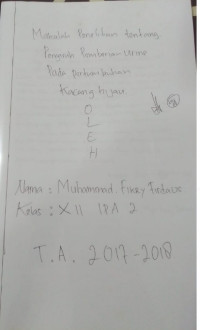 Makalah Penelitian tentang
Pengaruh Pemberian Urine
Pada pertumbuhan
Kacang hijau
O
L
E
H
Nama : Muhammad
Kelas : XII IPA 2
T.A. 2017-2018